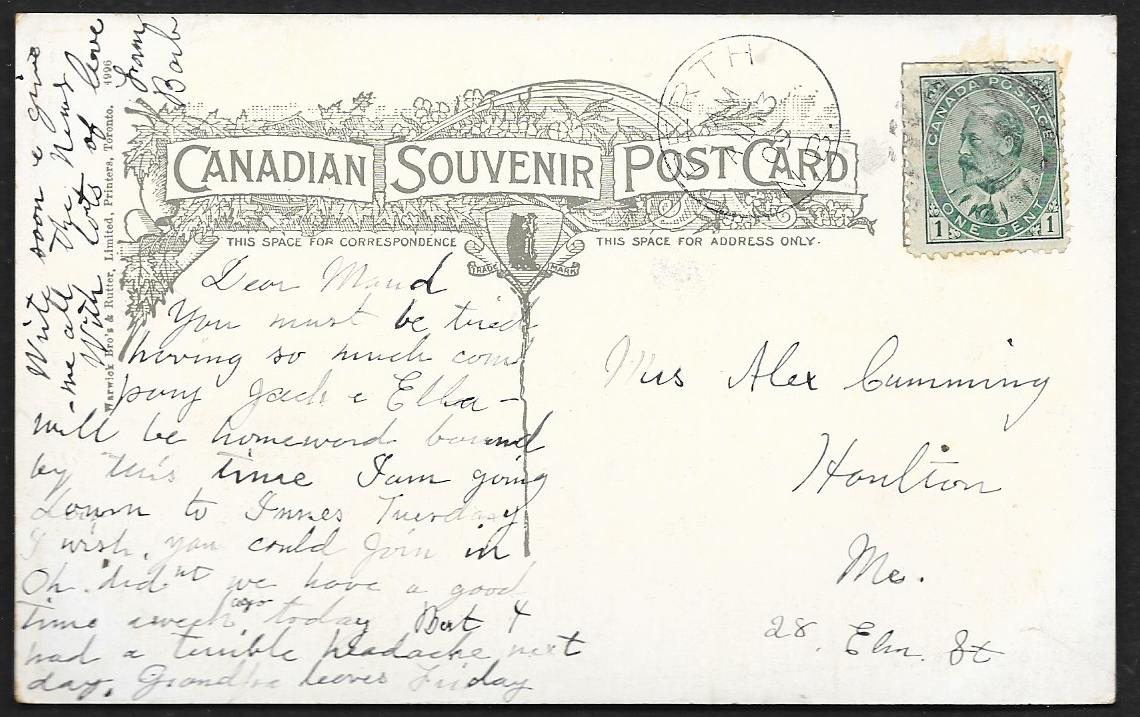 CANADIAN SOUVENIR POST CARD
THIS SPACE FOR CORRESPONDENCE
THIS SPACE FOR ADDRESS ONLY.
TRADE MARK
CANADA POSTAGE
ONE CENT
1 1
PERTH
N.B.
Warwick Bro's & Rutter, Limited, Printers, Toronto. 4996
Dear Maud
You must be tired
having so much com
pany Jack & Ella -
will be homeward bound
by this time I am going
down to Innes Tuesday
I wish you could join in
Oh didn't we have a good
time a week ago today But I
had a terrible headache next
day. Grandpa leaves Friday
Write soon & give
me all the news
With lots of love
from
Barb
Mrs Alex Cumming
Houlton
Me.
28. Elm St